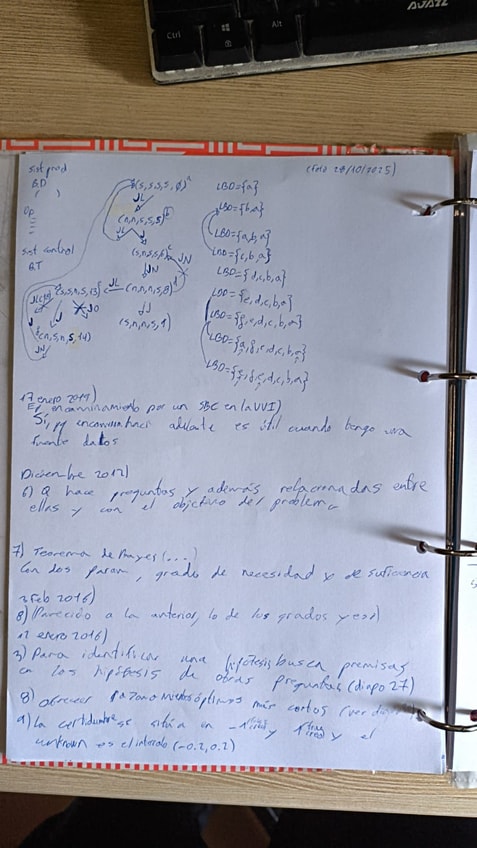 Ctrl
Alt
(Feb 28/10/2025)
Sist prod
BD
( )
Op
Sist control
BT
(s,s,s,s,0)a
JL
(n,n,s,s,5)b
JL
J
(s,n,s,s,6)c
JN
JN
(n,n,n,s,8)
JL
(s,s,n,s,13)
JO
J
J
(s,n,n,s,1)
(n,s,n,s,14)
JN
LBD={a}
LBD={b,a}
LBD={a,b,a}
LBD={c,b,a}
LBD={d,c,b,a}
LBD={e,d,c,b,a}
LBD={f,e,d,c,b,a}
LBD={a,f,e,d,c,b,a}
17 enero 2019)
encaminamiento por un SBC en la UVI)
Sí, encaminam. haci adelante es útil cuando tengo una
fuente datos
Diciembre 2012)
6) Q hace preguntas y además relacionadas entre
ellas y con el objetivo del problema
7) Teorema de Bayes (...)
Con dos param, grado de necesidad y de suficiencia
2 Feb 2016)
8) (Parecido a la anterior, lo de los grados y eso)
12 enero 2016)
3) Para identificar una hipótesis busca premisas
en las hipótesis de otras preguntas (diapo 27)
8) ofrecer razonamientos óptimos más cortos (ver
9) La certidumbre se sitúa en y y el
unknown es el intervalo (-0.2, 0.2)